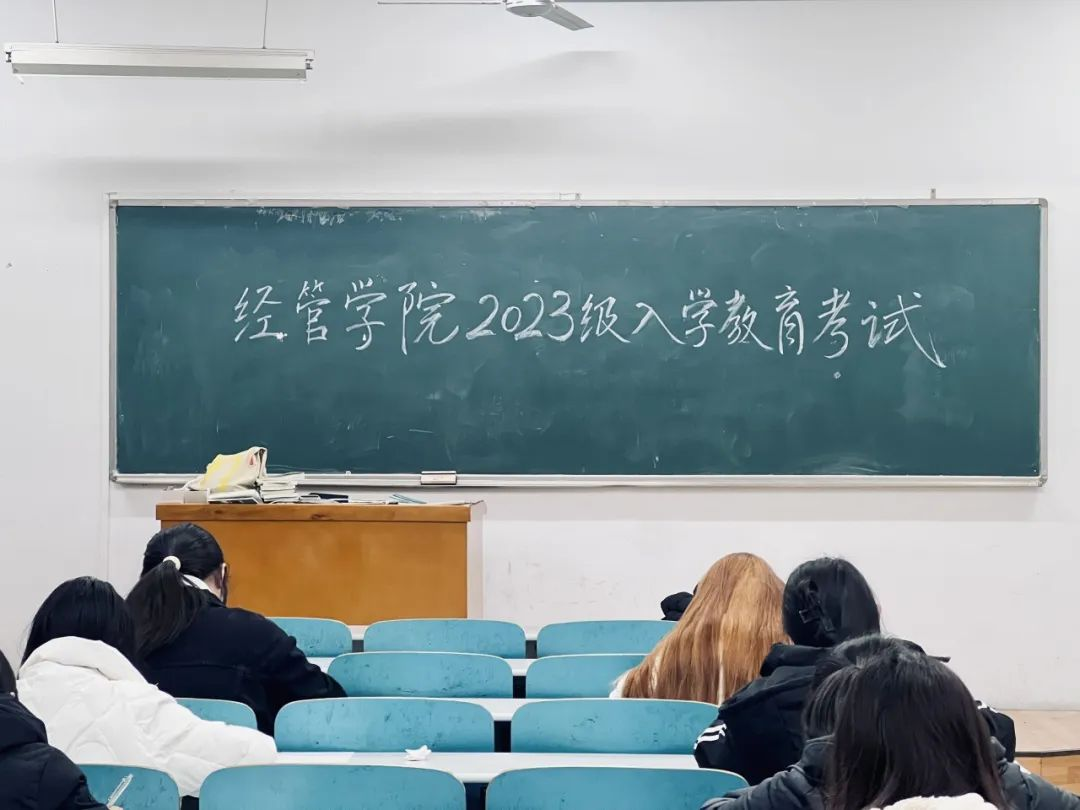 经管学院2023级入学教育考试